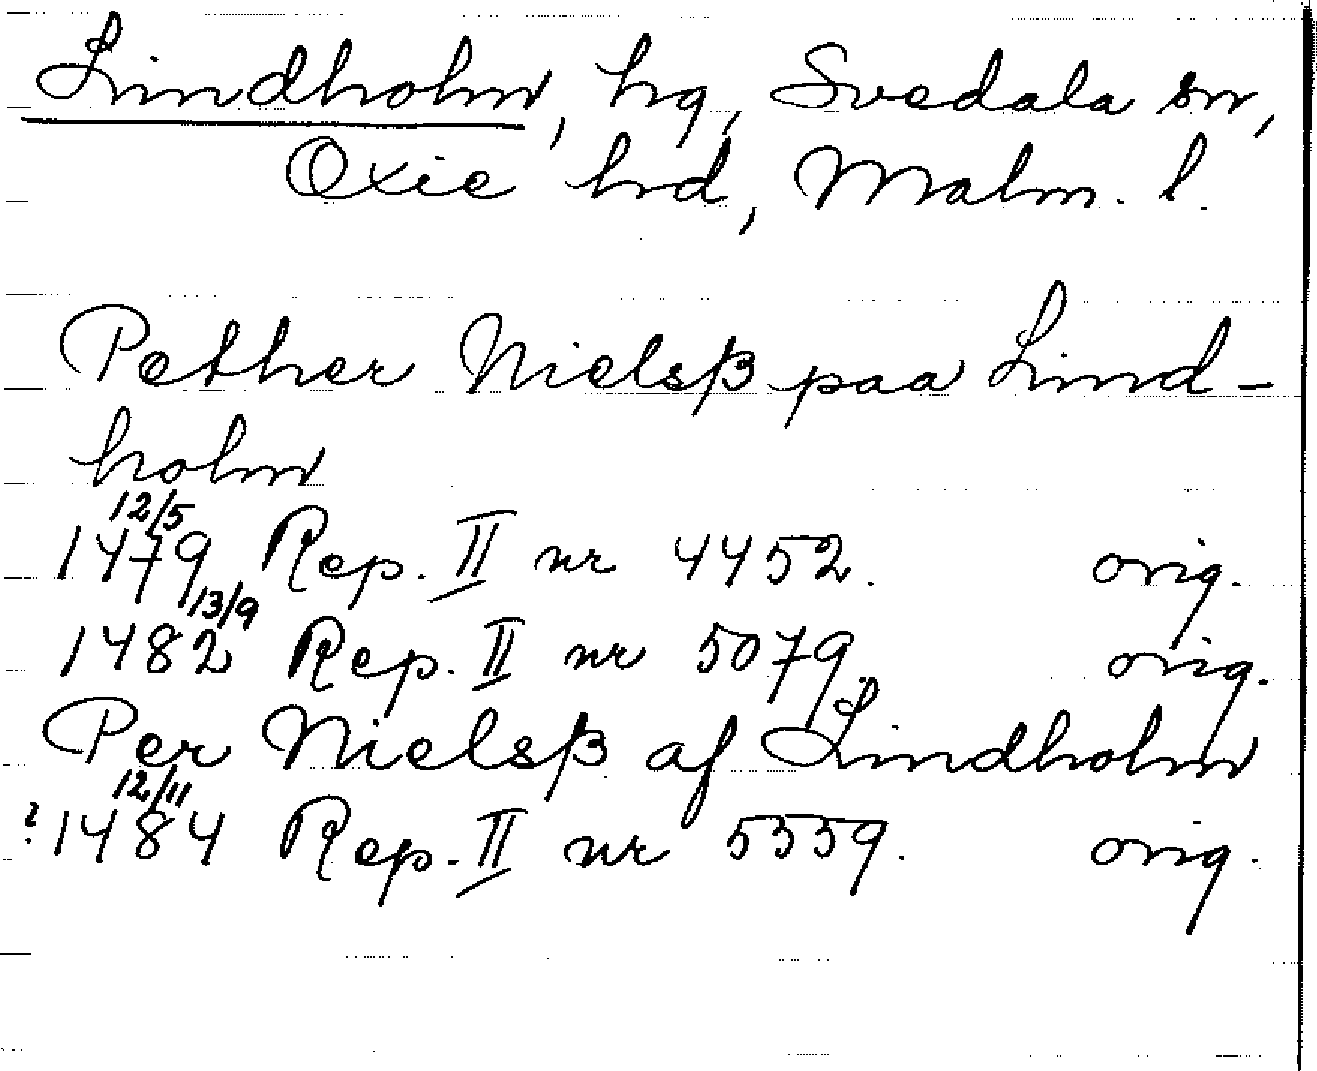 Lindholm, hg, Svedala sn,
Oxie hrd, Malm. l.
Pether Nielsß paa Lind-
holm
12/5
1479 Rep. II nr 4452. orig.
13/9
1482 Rep. II nr 5079. orig.
Per Nielsß af Lindholm
12/11
?1484 Rep. II nr 5559. orig.